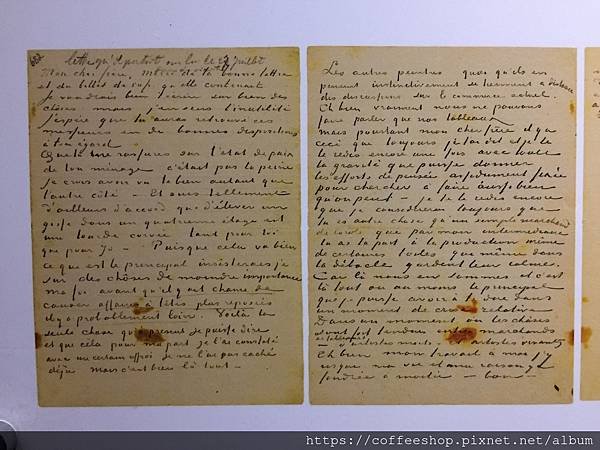 lettre qu'il portait sur lui le 27 juillet
Mon cher frère, Merci de ta bonne lettre
et du billet de 50 f qu'elle contenait
Je voudrais bien t'écrire sur bien des
choses mais j'en sens l'inutilité
J'espère que tu auras retrouvé ces
messieurs en de bonnes dispositions
à ton égard
Que tu me rassures sur l'état de paix
de ton ménage c'était pas la peine
je crois avoir vu le bien autant que
l'autre côté – Et suis tellement
d'ailleurs d'accord que d'élever un
gosse dans un quatrième étage est
une lourde corvée tant pour toi
que pour Jo – Puisque cela va bien
ce qui est le principal insisterais je
sur des choses de moindre importance
ma foi avant qu'il y ait chance de
causer affaires à têtes plus reposées
il y a probablement loin. Voilà la
seule chose qu'à présent je puisse dire
et que cela pour ma part je l'ai constaté
avec un certain effroi je ne l'ai pas caché
déjà mais c'est bien là tout –
Les autres peintres quoi qu'ils en
pensent instinctivement se tiennent à distance
des discussions sur le commerce actuel.
Eh bien vraiment nous ne pouvons
faire parler que nos tableaux
mais pourtant mon cher frère il y a
ceci que toujours je t'ai dit et je te
le redis encore une fois avec toute
la gravité que puisse donner
les efforts de pensée assidument fixée
pour chercher à faire aussi bien
qu'on peut – je te le redis encore
que je considérerai toujours que
tu es autre chose qu'un simple marchand
de Corots que par mon intermédiaire
tu as ta part à la production même
de certaines toiles qui même dans
la débâcle gardent leur calme.
Car là nous en sommes et c'est
là tout ou au moins le principal
que je puisse avoir à te dire dans
un moment de crise relative
Dans un moment où les choses
sont fort tendues entre marchands
de tableaux – d'artistes morts – et artistes vivants
Eh bien mon travail à moi j'y
risque ma vie et ma raison y a
fondrée à moitié – bon –
https://coffeeshop.pixnet.net/album